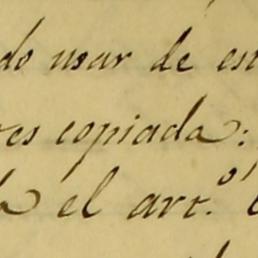 do usar de es
es copiada:
a el art.º